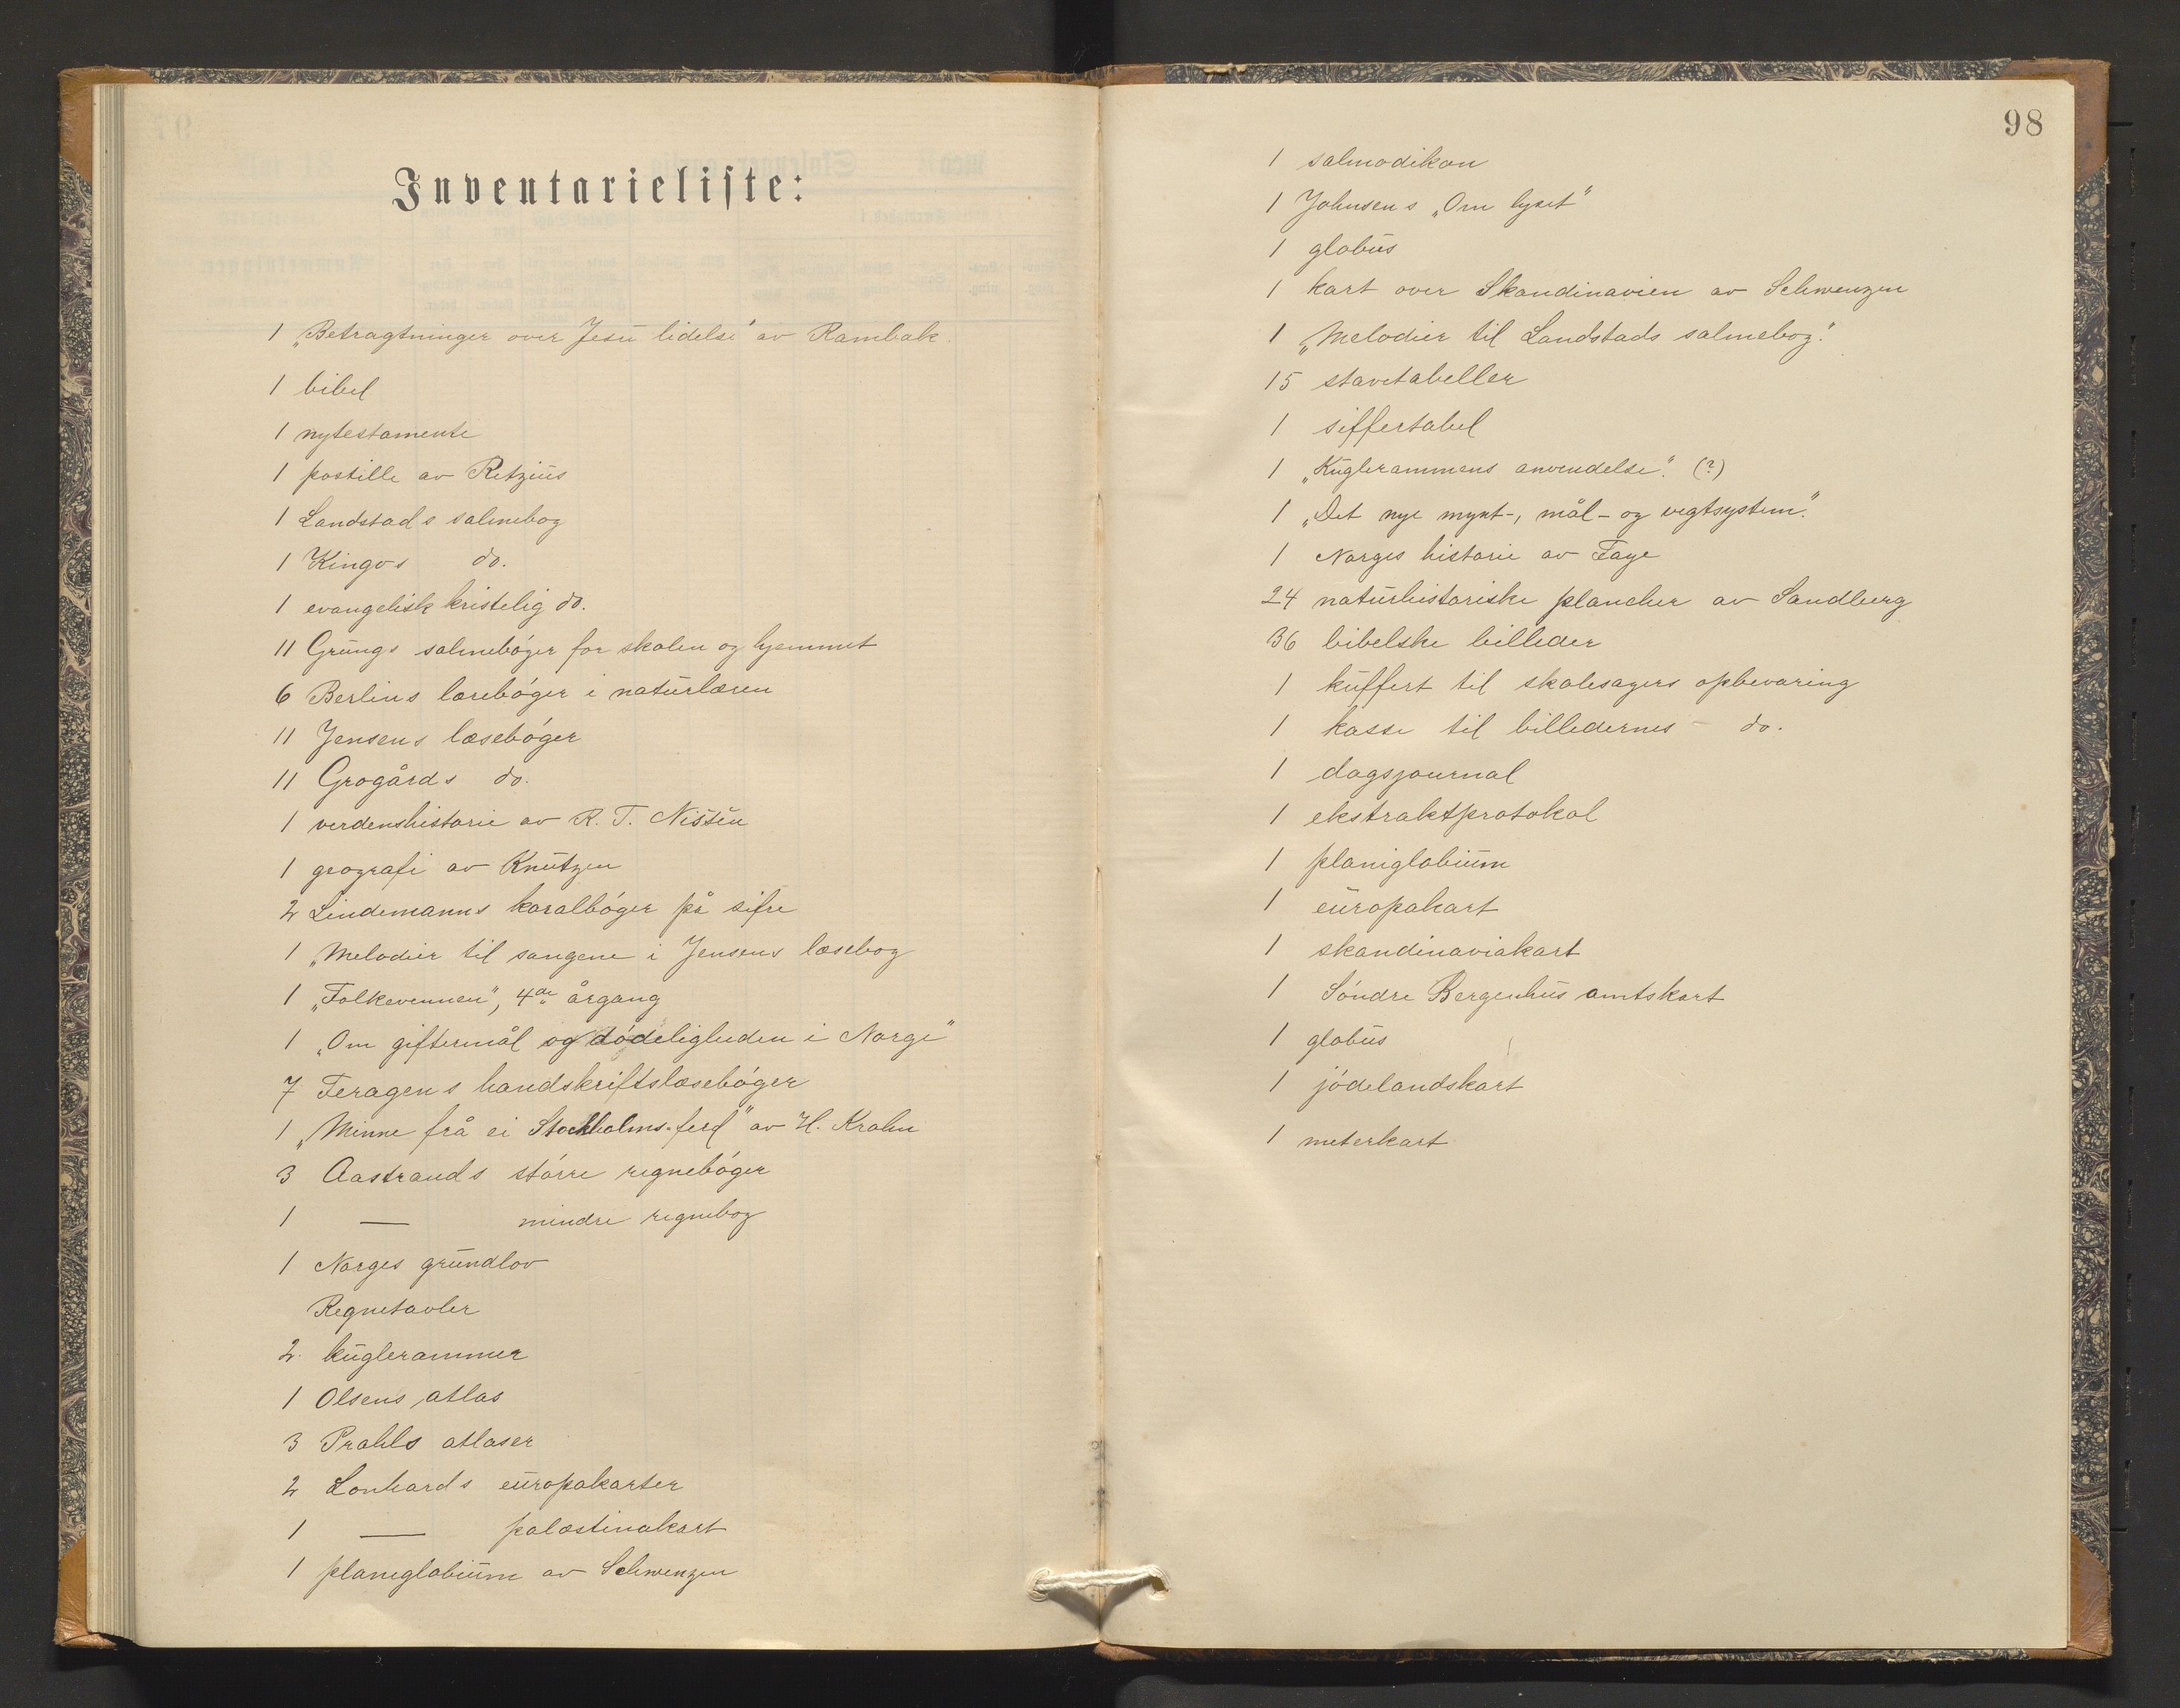 Inventarieliste:
1 „Betragtninger over Jesu lidelse" av Rambak.
1 bibel
1 nytestamente
1 postille av Retzius
1 Landstads salmebog
1 Kingos do.
1 evangelisk kristelig do.
11 Grungs salmebóger for skolen og hjemmet
6 Berlins lærebóger i naturlæren
11 Jensens læsebóger
11 Grogårds do.
1 verdenshistorie av R. T. Nissen
1 geografi av Knutzen
2 Lindemanns koralbóger på sifre
1 „Melodier til sangene i Jensens læsebog
1 „Folkevennen", 4de årgang
1 „Om giftermål og dódeligheden i Norge"
7 Feragens handskriftslæsebóger
1 „Minne frå ei Stockholms-ferd" av H. Krohn
3 Aastrands stórre regnebóger
1 — mindre regnebog
1 Norges grundlov
Regnetavler
2. kuglerammer
1 Olsens atlas
3 Prahls atlaser
2 Lonhards europakarter
1 — palæstinakart
1 planiglobium av Schwenzen
98
1 salmodikon
1 Johnsens „Om lyset"
1 globus
1 kart over Skandinavien av Schwenzen
1 „Melodier til Landstads salmebog."
15 stavetabeller
1 siffertabel
1 „Kuglerammens anvendelse." (?)
1 „Det nye mynt-, mål- og vegtsystem."
1 Norges historie av Faye
24 naturhistoriske plancher av Sandberg
36 bibelske billeder
1 kuffert til skolesagers opbevaring
1 kasse til billedernes - do.
1 dagsjournal
1 ekstraktprotokol
1 planiglobium
1 europakart
1 skandinaviakart
1 Sóndre Bergenhus amtskart
1 globus
1 jódelandskart
1 meterkart